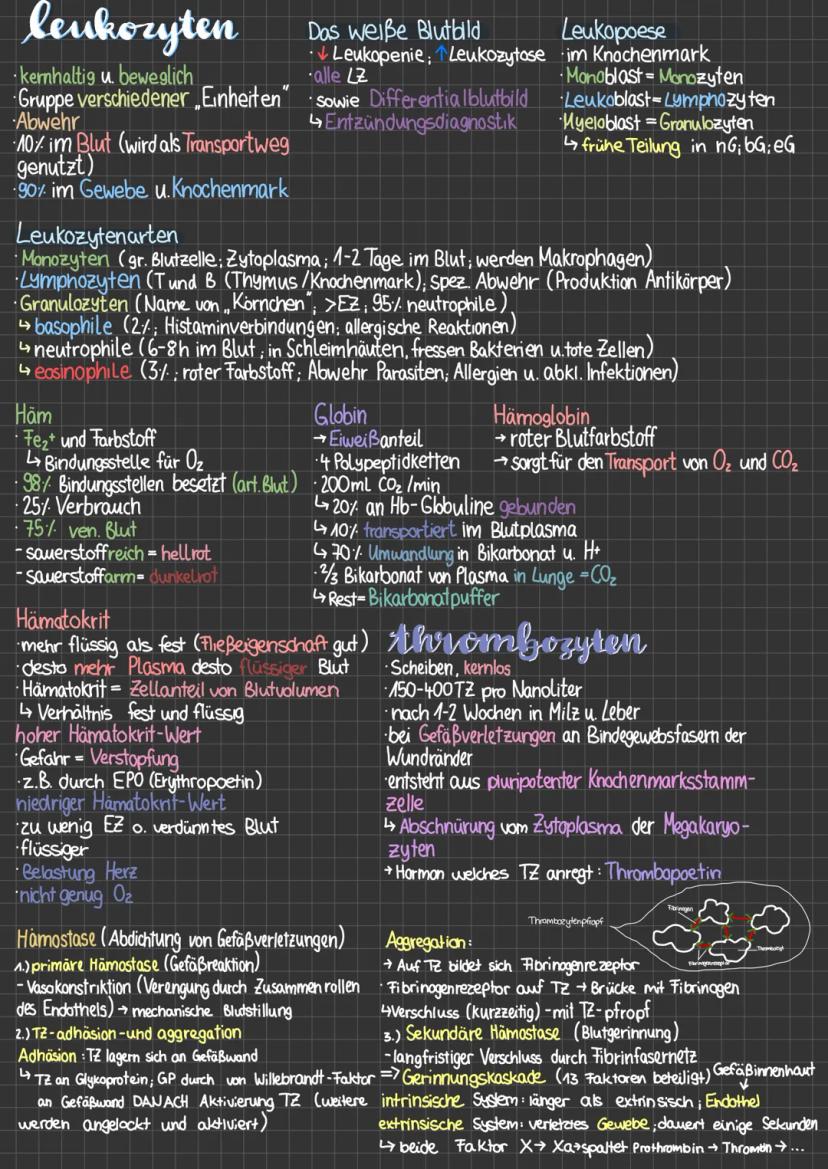 leukozyten
·kernhaltig u. beweglich
·Gruppe verschiedener „Einheiten“
·Abwehr
·10% im Blut (wird als Transportweg
genutzt)
·90% im Gewebe u. Knochenmark
Das weiße Blutbild
·↓ Leukopenie; ↑ Leukozytose
·alle LZ
·sowie Differentialblutbild
↳ Entzündungsdiagnostik
Leukopoese
·im Knochenmark
·Monoblast = Monozyten
·Leukoblast = Lymphozyten
·Myeloblast = Granulozyten
↳ frühe Teilung in nG; bG; eG
Leukozytenarten
·Monozyten (gr. Blutzelle; Zytoplasma; 1-2 Tage im Blut; werden Makrophagen)
·Lymphozyten (T und B (Thymus/Knochenmark); spez. Abwehr (Produktion Antikörper)
·Granulozyten (Name von „Körnchen“; >EZ; 95% neutrophile)
↳ basophile (2%; Histaminverbindungen; allergische Reaktionen)
↳ neutrophile (6-8h im Blut; in Schleimhäuten, fressen Bakterien u. tote Zellen)
↳ eosinophile (3%; roter Farbstoff; Abwehr Parasiten; Allergien u. abkl. Infektionen)
Häm
·Fe₂⁺ und Farbstoff
↳ Bindungsstelle für O₂
·98% Bindungsstellen besetzt (art. Blut)
·25% Verbrauch
·75% ven. Blut
- sauerstoffreich = hellrot
- sauerstoffarm = dunkelrot
Globin
→ Eiweißanteil
·4 Polypeptidketten
·200ml CO₂/min
↳ 20% an Hb-Globuline gebunden
↳ 10% transportiert im Blutplasma
↳ 70% Umwandlung in Bikarbonat u. H+
·⅔ Bikarbonat von Plasma in Lunge = CO₂
↳ Rest = Bikarbonatpuffer
Hämoglobin
→ roter Blutfarbstoff
→ sorgt für den Transport von O₂ und CO₂
Hämatokrit
·mehr flüssig als fest (Fließeigenschaft gut)
·desto mehr Plasma desto flüssiger Blut
·Hämatokrit = Zellanteil von Blutvolumen
↳ Verhältnis fest und flüssig
hoher Hämatokrit-Wert
·Gefahr = Verstopfung
·z.B. durch EPO (Erythropoetin)
niedriger Hämatokrit-Wert
·zu wenig EZ o. verdünntes Blut
·flüssiger
·Belastung Herz
·nicht genug O₂
thrombozyten
·Scheiben, kernlos
·150-400 TZ pro Nanoliter
·nach 1-2 Wochen in Milz u. Leber
·bei Gefäßverletzungen an Bindegewebsfasern der
Wundränder
·entsteht aus pluripotenter Knochenmarksstamm-
zelle
↳ Abschnürung vom Zytoplasma der Megakaryo-
zyten
→ Hormon welches TZ anregt: Thrombopoetin
Thrombozytenpfropf
Fibrinogen
Thrombozyt
Fibrinogenrezeptor
Hämostase (Abdichtung von Gefäßverletzungen)
1.) primäre Hämostase (Gefäßreaktion)
- Vasokonstriktion (Verengung durch Zusammenrollen
des Endothels) → mechanische Blutstillung
2.) TZ-adhäsion-und aggregation
Adhäsion: TZ lagern sich an Gefäßwand
↳ TZ an Glykoprotein; GP durch von Willebrandt-Faktor
an Gefäßwand DANACH Aktivierung TZ (weitere
werden angelockt und aktiviert)
Aggregation:
→ Auf TZ bildet sich Fibrinogenrezeptor
·Fibrinogenrezeptor auf TZ → Brücke mit Fibrinogen
↳ Verschluss (kurzzeitig) - mit TZ-pfropf
3.) Sekundäre Hämostase (Blutgerinnung)
- langfristiger Verschluss durch Fibrinfasernetz
=> Gerinnungskaskade (13 Faktoren beteiligt) Gefäßinnenhaut
↓
intrinsische System: länger als extrinsisch; Endothel
extrinsische System: verletztes Gewebe; dauert einige Sekunden
↳ beide Faktor X → Xa → spaltet Prothrombin → Thrombin → ...